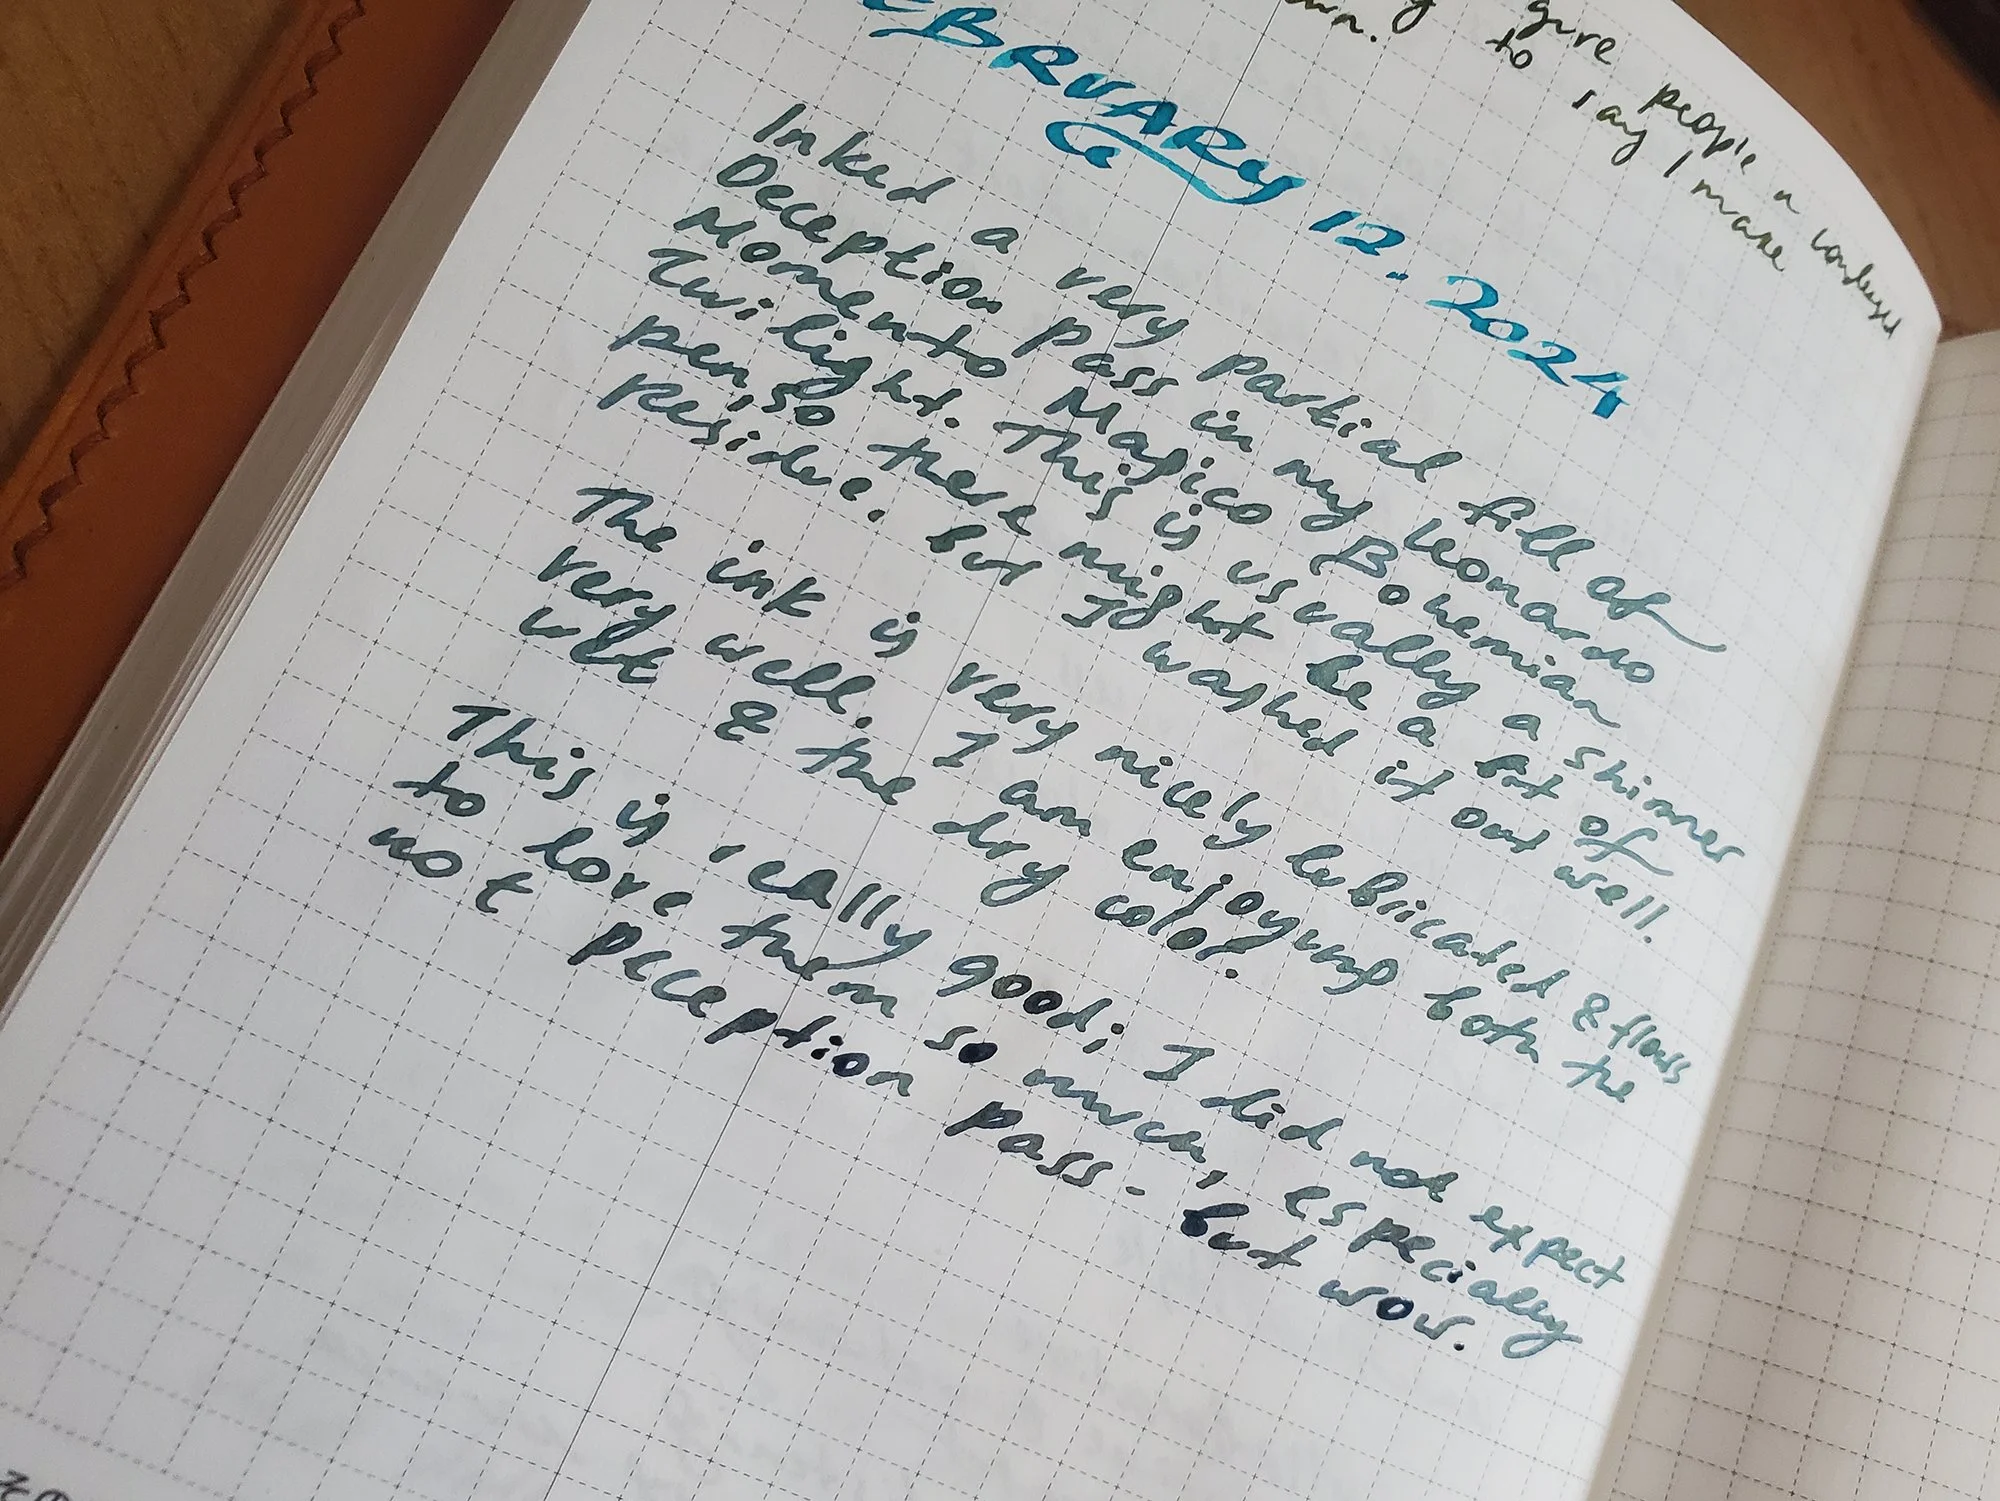 gure people a
to say I make
EBRUARY 12. 2024
Inked a very partial fill of
Deception pass in my Leonardo
Momento Magico Bohemian
Twilight. This is usually a shimmer
pen, so there might be a bit of
residue. but I washed it out well.
The ink is very nicely lubricated & flows
very well. I am enjoying both the
wet & the dry color.
This is really good; I did not expect
to love them so much, especially
not peception pass - but wow.
その